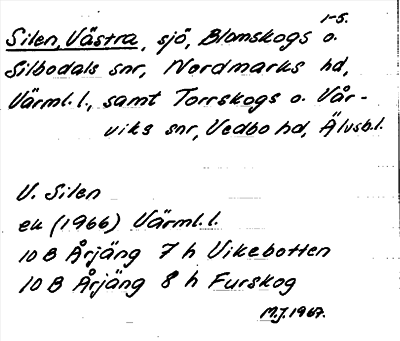 1-5.
Silen, Västra, sjö, Blomskogs o.
Silbodals snr, Nordmarks hd,
Värml. l., samt Torrskogs o. Vår-
viks snr, Vedbo hd, Älvsb.l.
V. Silen
ek (1966) Värml. l.
10 B Årjäng 7 h Vikebotten
10 B Årjäng 8 h Furskog
M.J. 1967.